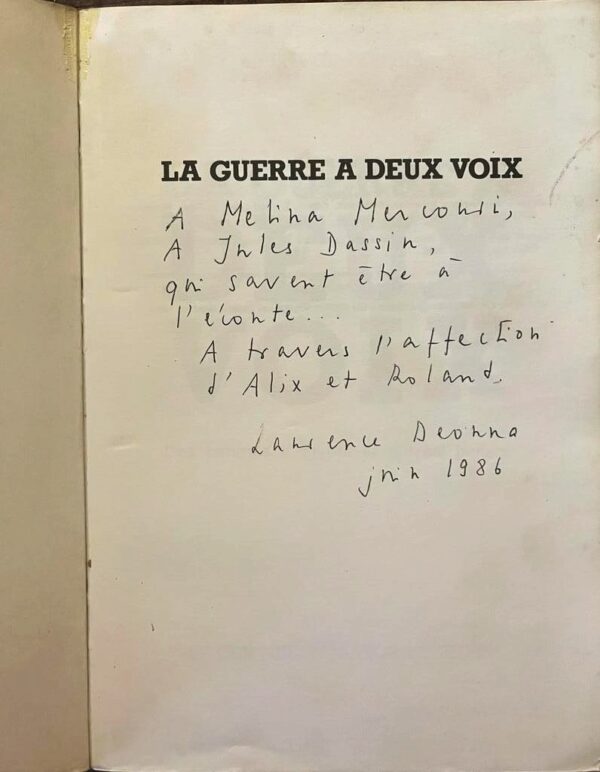 LA GUERRE A DEUX VOIX
A Melina Mercouri,
A Jules Dassin,
qui savent être à
l'écoute...
A travers l'affection
d'Alix et Roland.
Laurence Deonna
juin 1986